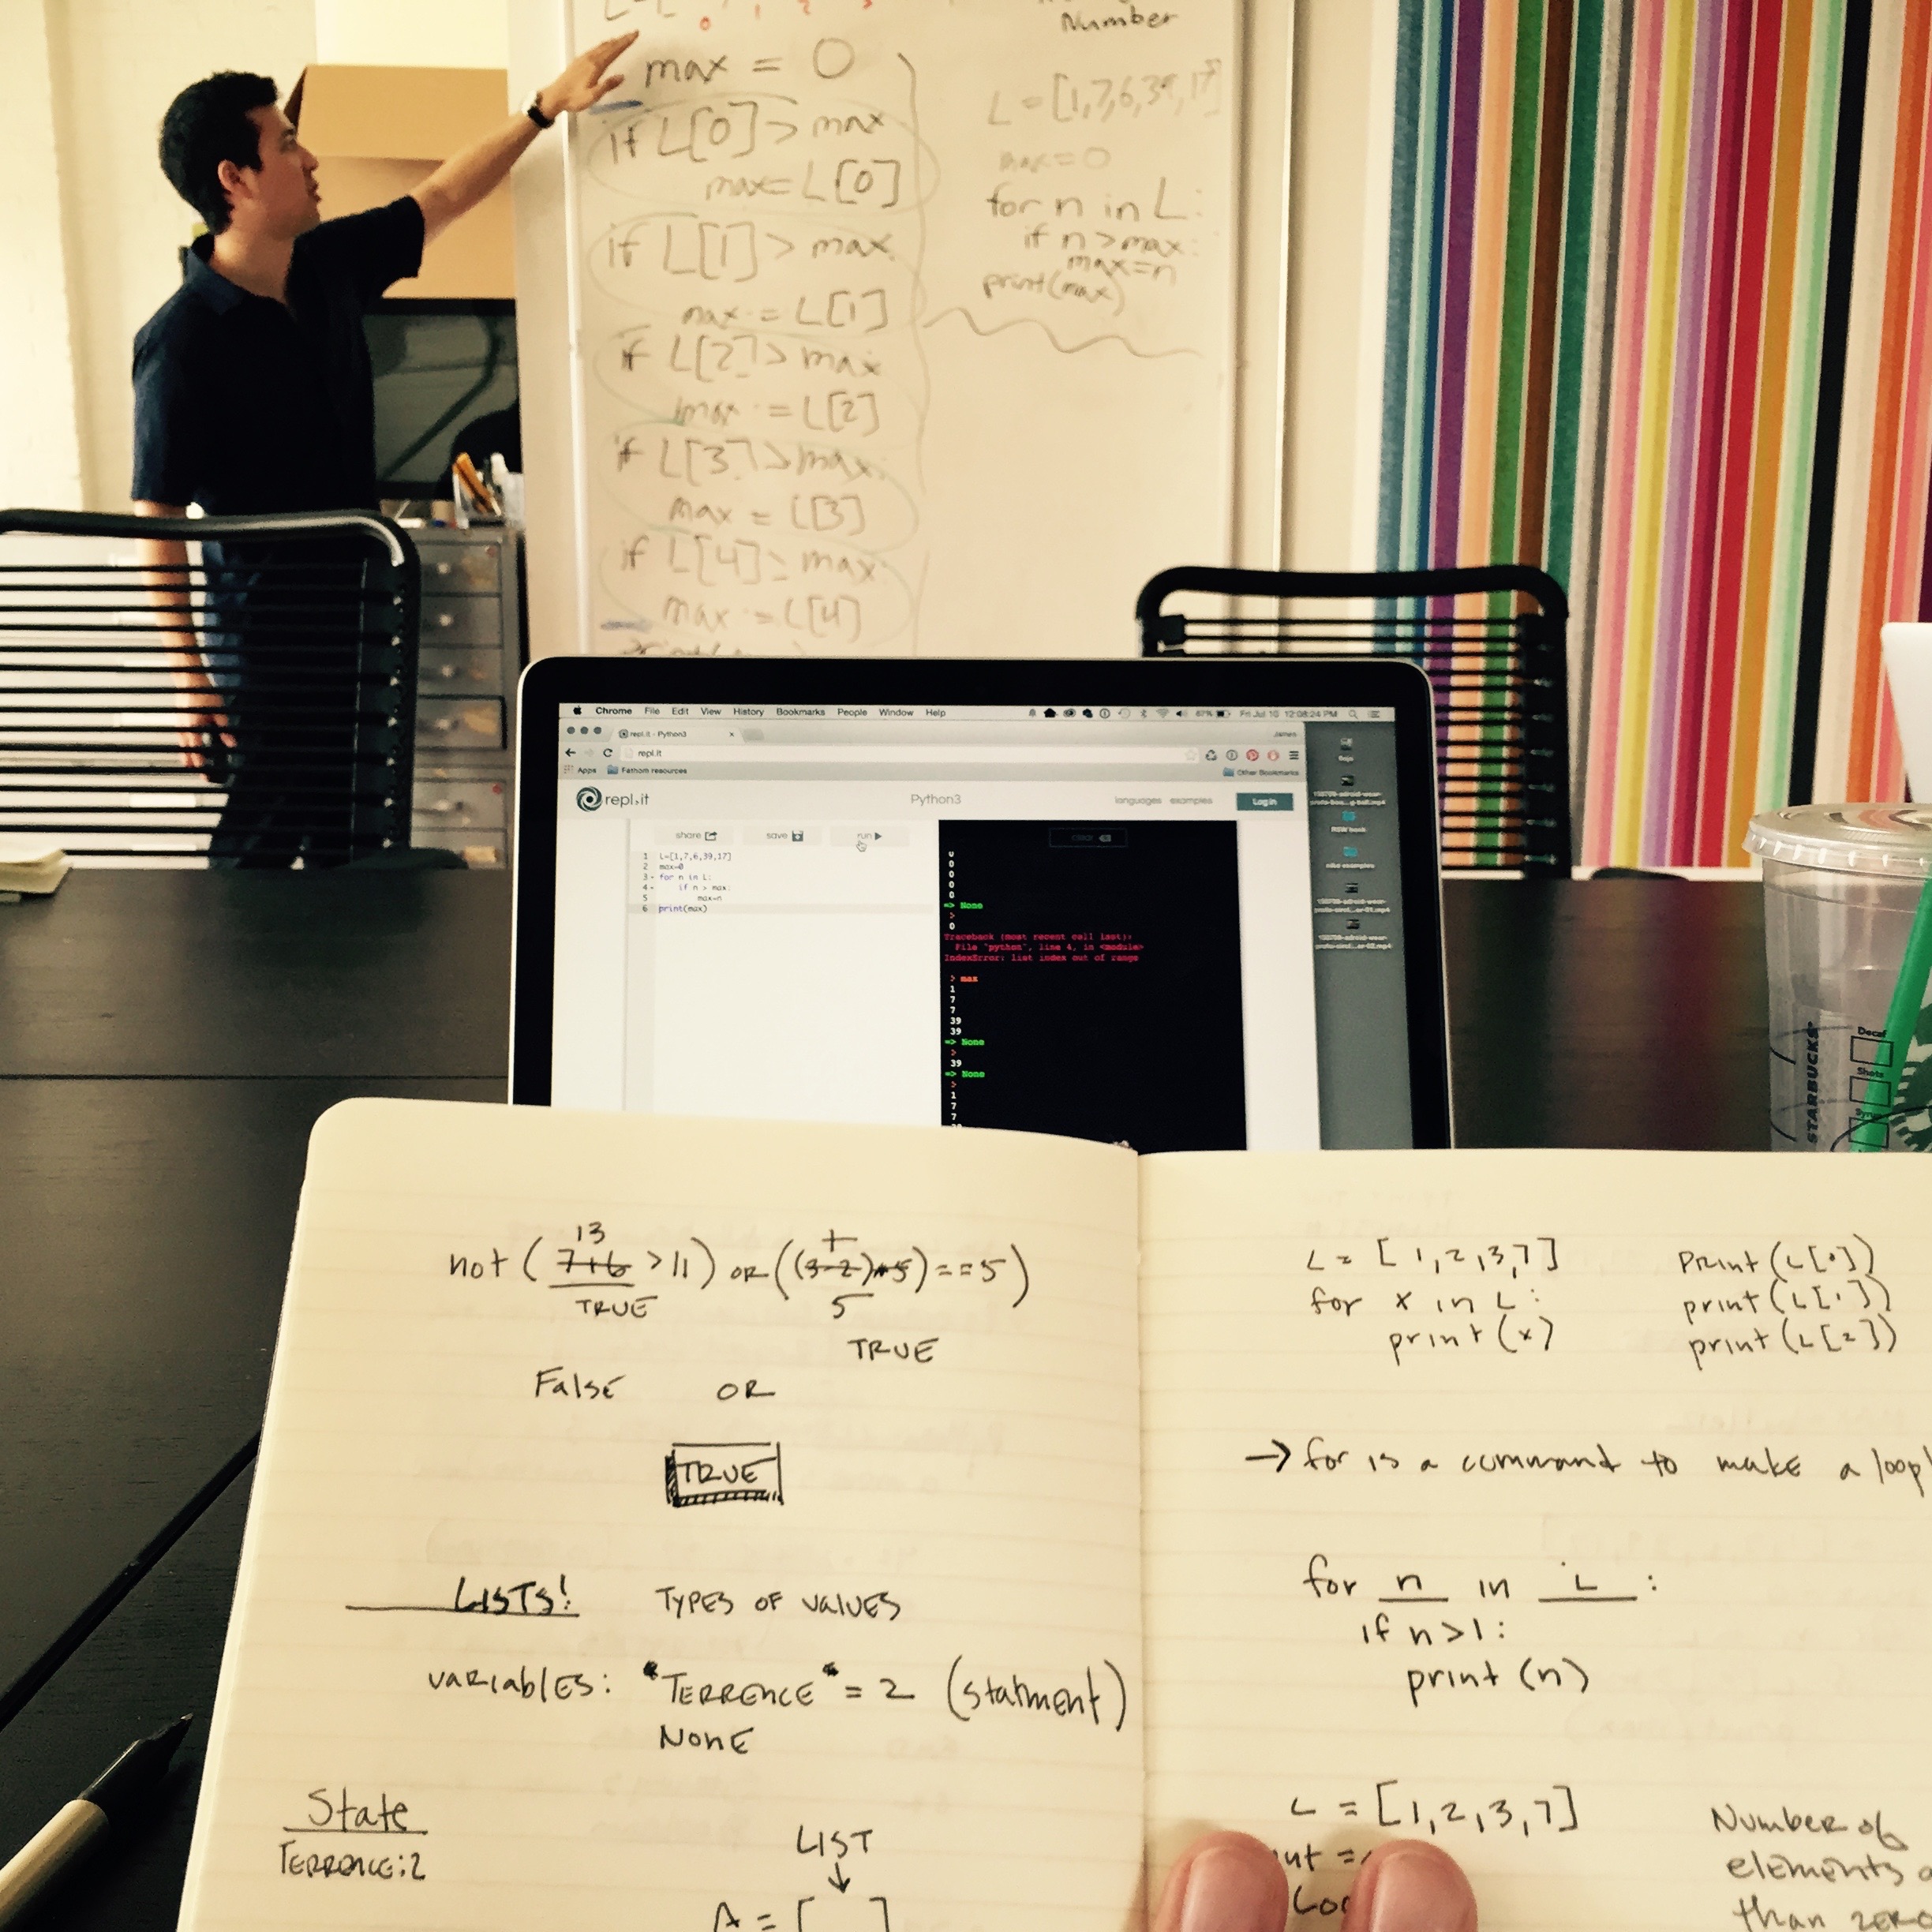 Number
max = 0
if L[0] > max
max = L[0]
if L[1] > max
max = L[1]
if L[2] > max
max = L[2]
if L[3] > max:
max = L[3]
if L[4] > max:
max = L[4]
L = [1,7,6,39,17]
max = 0
for n in L:
if n > max:
max = n
print(max)
Chrome File Edit View History Bookmarks People Window Help 67% Fri Jul 10 12:08:24 PM
repl.it - Python3
James
repl.it
Apps Fathom resources
Other Bookmarks
repl.it Python3 languages examples Log in
share save run
clear
1 L=[1,7,6,39,17]
2 max=0
3 for n in L:
4 if n > max:
5 max=n
6 print(max)
0
0
0
0
=> None
>
0
Traceback (most recent call last):
File "python", line 4, in <module>
IndexError: list index out of range
> max
1
7
7
39
39
=> None
>
39
=> None
>
1
7
7
STARBUCKS
Decaf
Shots
Syrup
13
not ( 7+6 > 11) OR ((3-2)*5) == 5)
TRUE
5
TRUE
False OR
TRUE
LISTS! TYPES OF VALUES
variables: "TERRENCE" = 2 (statment)
NONE
State
TERRENCE: 2
LIST
A = [ ]
L = [1,2,3,7]
for x in L:
print (x)
Print (L[0])
print (L[1])
print (L[2])
→ for is a command to make a loop
for n in L :
if n > 1:
print (n)
L = [1,2,3,7]
Number of
elements
than zero